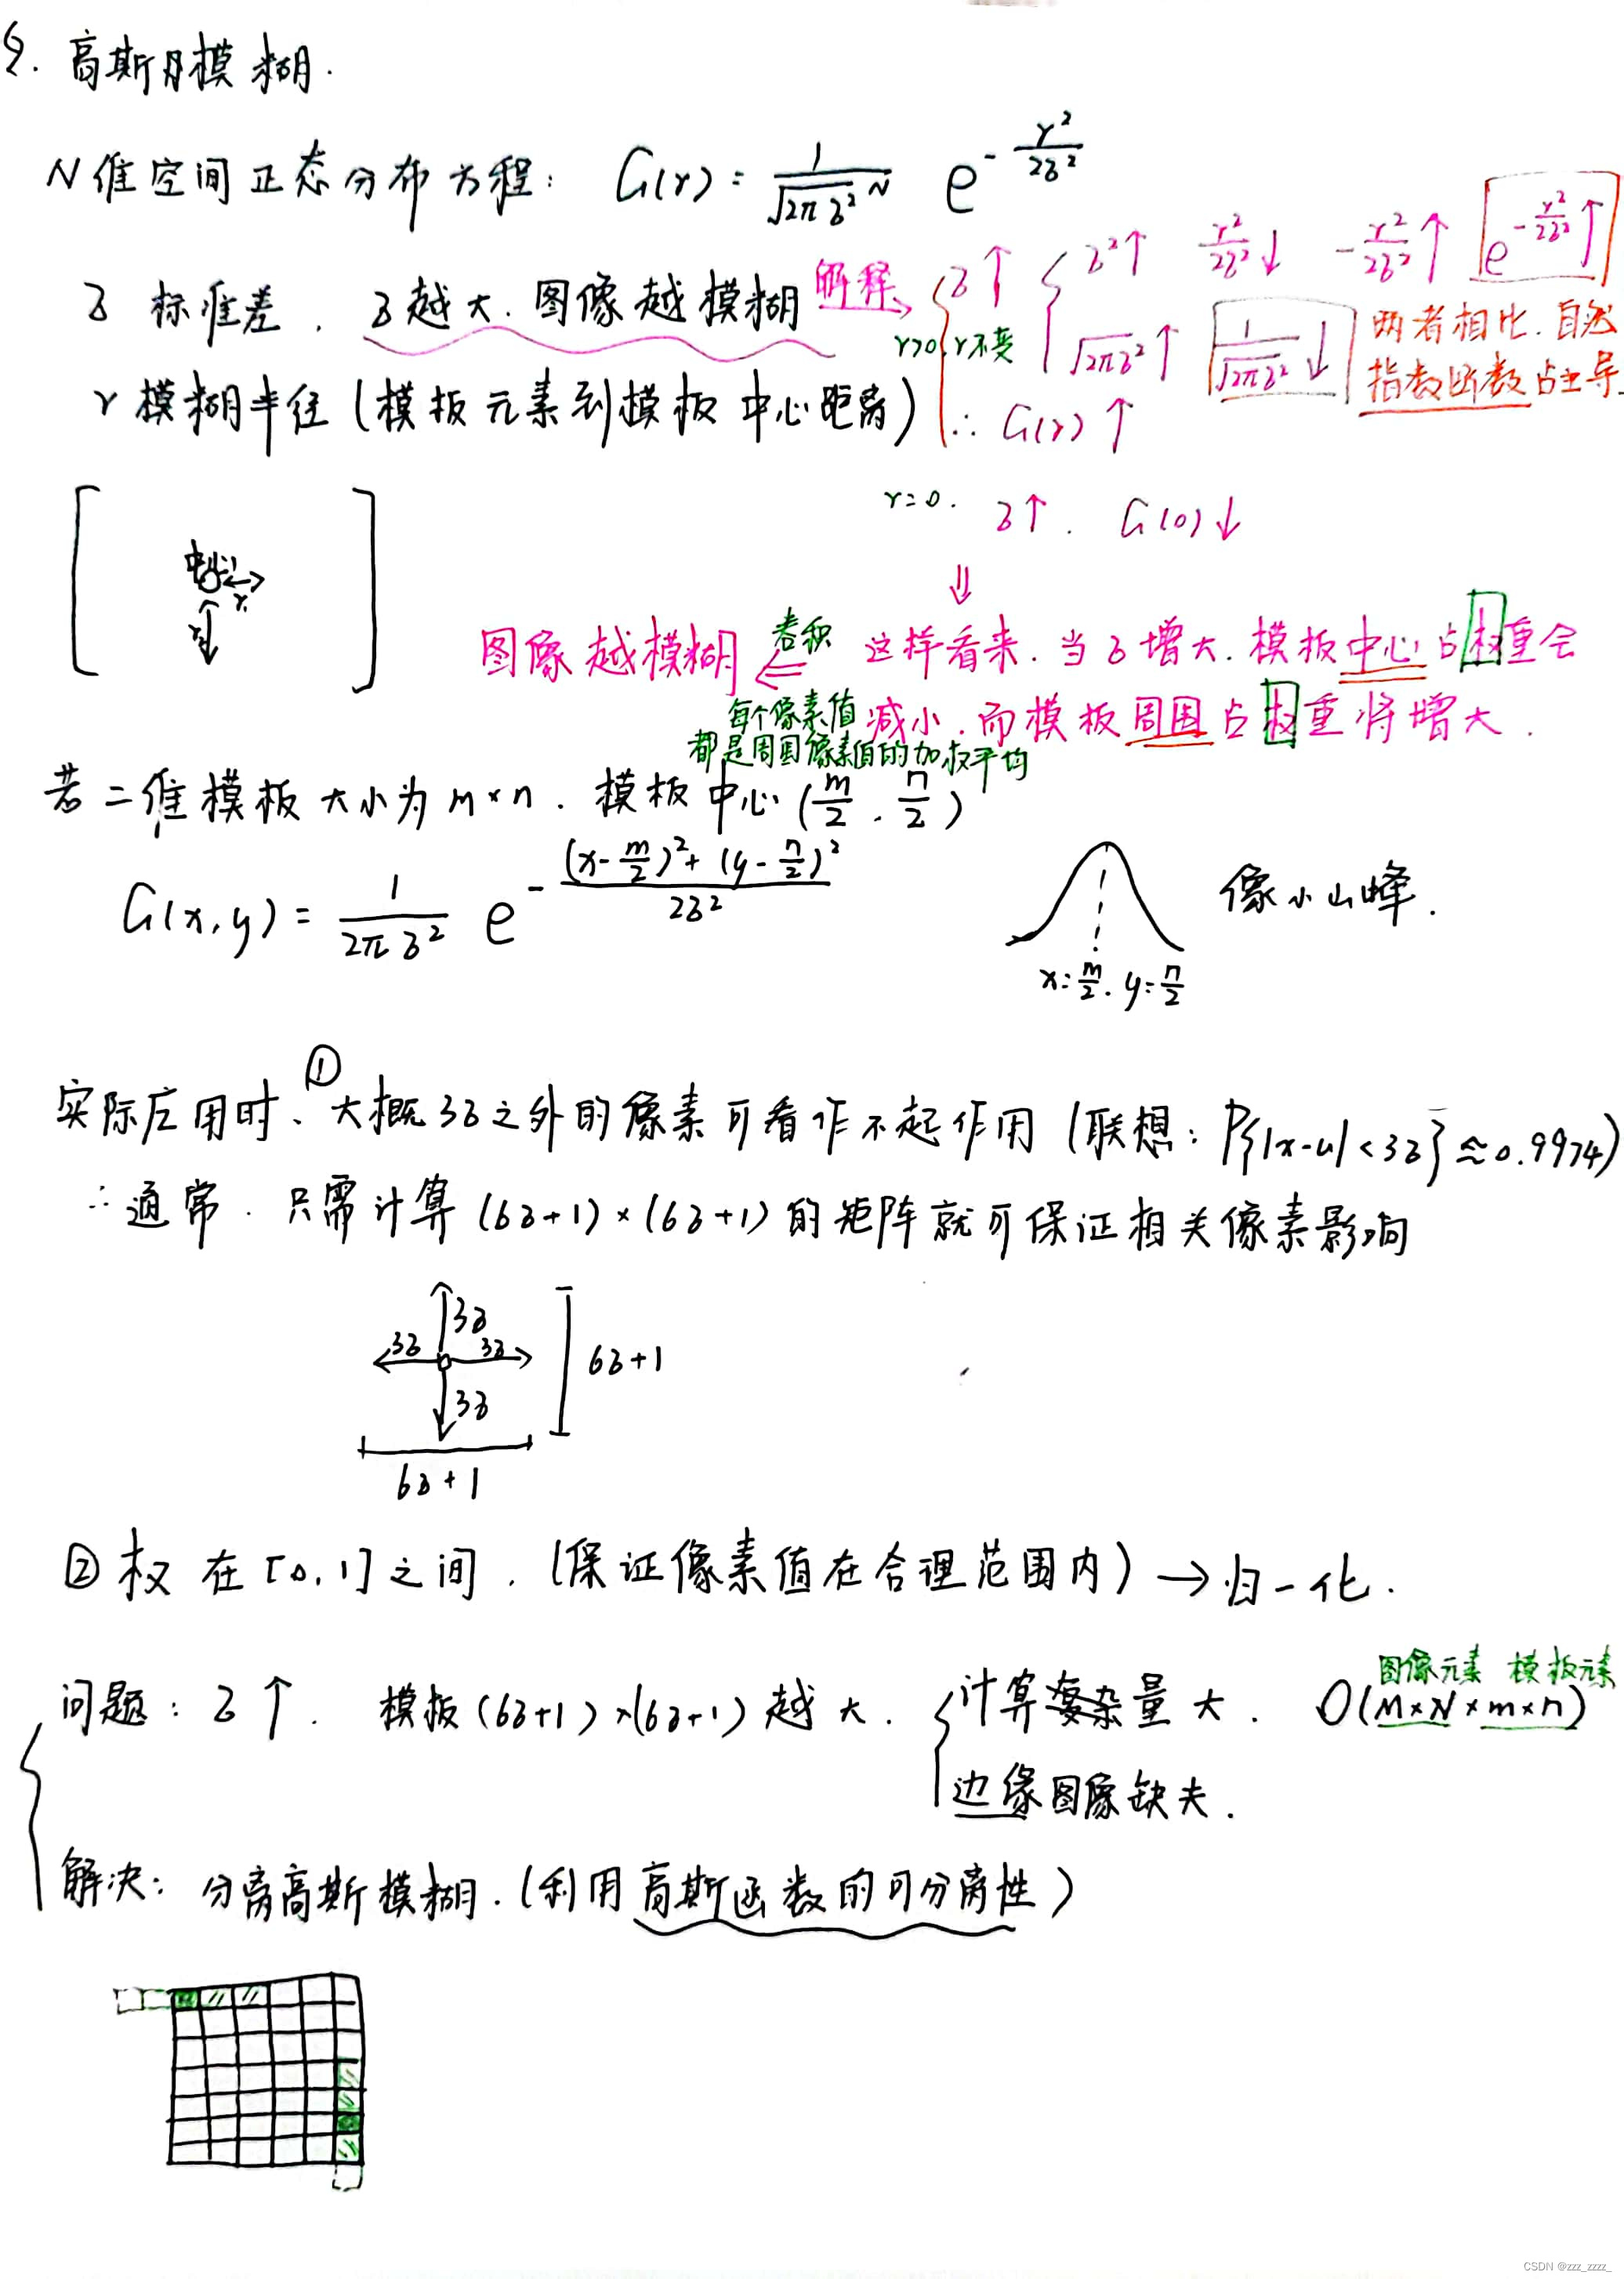 §. 高斯模糊.
N维空间正态分布方程: G(r) = 1/√(2πσ²)^N e^(-r²/2σ²)
σ 标准差. σ越大.图像越模糊 解释→ r>0, r不变 { σ↑ { σ²↑ r²/2σ²↓ -r²/2σ²↑ e^(-r²/2σ²)↑
√(2πσ²)↑ 1/√(2πσ²)↓ 两者相比.自然
指数函数占主导
r 模糊半径 (模板元素到模板中心距离) ∴ G(r)↑
r=0. σ↑. G(0)↓
⇓
中心 r
r
图像越模糊 ⇐ 卷积 这样看来.当σ增大.模板中心占权重会
减小.而模板周围占权重将增大.
每个像素值
都是周围像素值的加权平均
若二维模板大小为m×n. 模板中心(m/2, n/2)
G(x,y) = 1/(2πσ²) e^(-((x-m/2)²+(y-n/2)²)/2σ²) 像小山峰.
x=m/2. y=n/2
实际应用时、①大概3σ之外的像素可看作不起作用 (联想: P{|x-u|<3σ}≈0.9974)
∴通常.只需计算(6σ+1)×(6σ+1)的矩阵就可保证相关像素影响
3σ
3σ 3σ 6σ+1
3σ
6σ+1
②权在[0,1]之间.(保证像素值在合理范围内)→归一化.
图像元素 模板元素
问题: σ↑. 模板(6σ+1)×(6σ+1)越大. { 计算量大. O(M×N×m×n)
边缘图像缺失.
解决: 分离高斯模糊.(利用高斯函数的可分离性)
CSDN @zzz_zzzz_